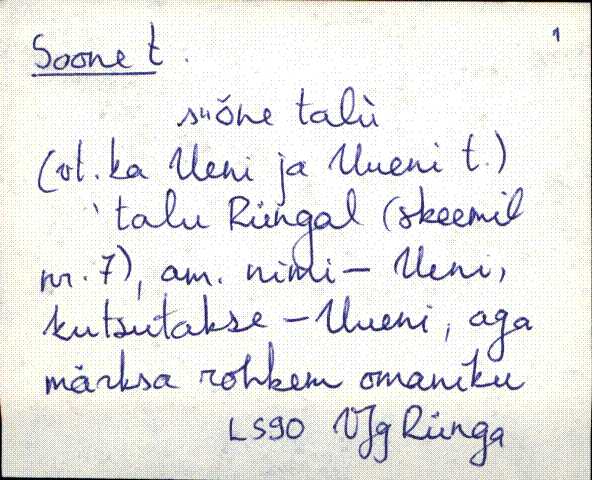 1
Soone t.
suõne talù
(vt. ka Ueni ja Uueni t.)
talu Rüngal (skeemil
nr. 7), am. nimi – Ueni,
kutsutakse – Uueni, aga
märksa rohkem omaniku
LS90 VJg Rünga